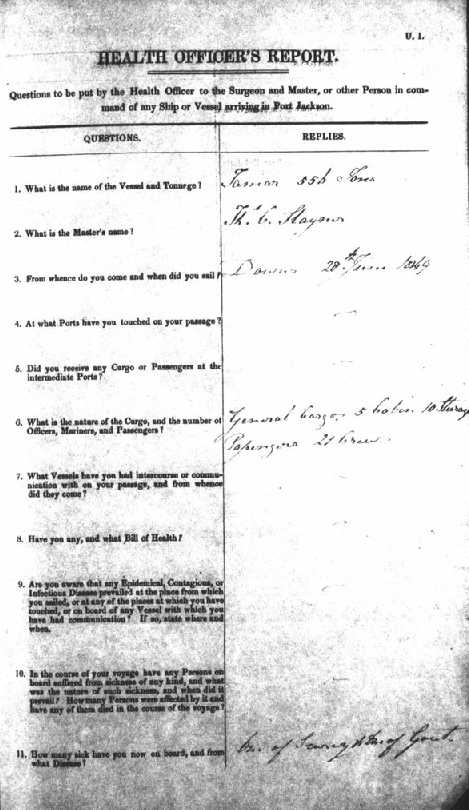 U. 1.
HEALTH OFFICER'S REPORT.
Questions to be put by the Health Officer to the Surgeon and Master, or other Person in com-
mand of any Ship or Vessel arriving in Port Jackson.
QUESTIONS. REPLIES.
1. What is the name of the Vessel and Tonnage? 556 Tons
2. What is the Master's name?
3. From whence do you come and when did you sail? Downs 28th June
4. At what Ports have you touched on your passage?
5. Did you receive any Cargo or Passengers at the
intermediate Ports?
6. What is the nature of the Cargo, and the number of General Cargo 5 Cabin 10 Steerage
Officers, Mariners, and Passengers? Passengers 21 Crew
7. What Vessels have you had intercourse or commu-
nication with on your passage, and from whence
did they come?
8. Have you any, and what Bill of Health?
9. Are you aware that any Epidemical, Contagious, or
Infectious Disease prevailed at the place from which
you sailed, or at any of the places at which you have
touched, or on board of any Vessel with which you
have had communication? If so, state where and
when.
10. In the course of your voyage have any Persons on
board suffered from sickness of any kind, and what
was the nature of such sickness, and when did it
prevail? How many Persons were affected by it and
have any of them died in the course of the voyage?
11. How many sick have you now on board, and from of Scurvy of Gout.
what Disease?